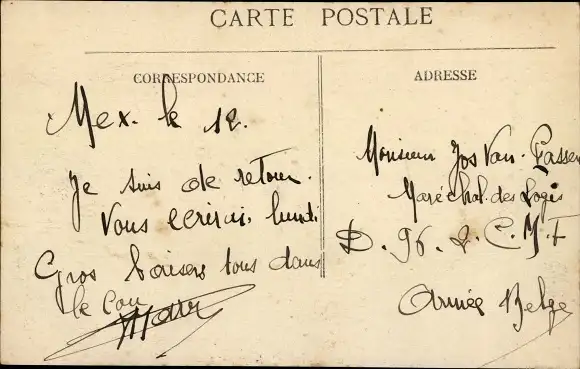 CARTE POSTALE
CORRESPONDANCE
Mex. le 12.
Je suis de retour.
Vous écrirai lundi
Gros baisers tous dans
le cou
ADRESSE
Monsieur Jos Van
Maréchal des Logis
D. 96. 2. C. M. F
Armée Belge